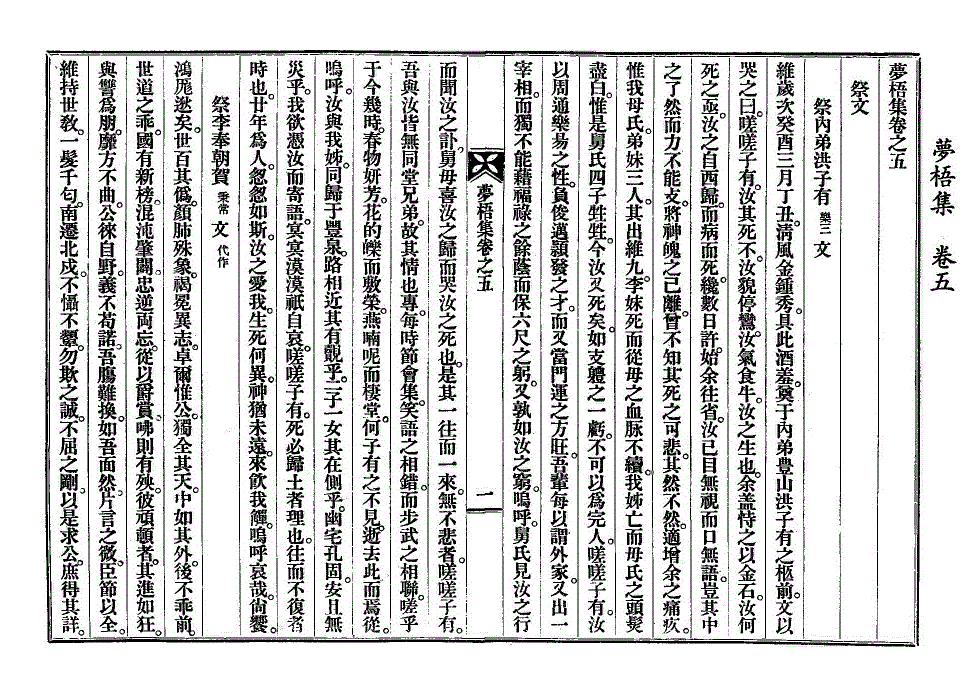 夢梧集　卷五
夢梧集卷之五
祭文
祭內弟洪子有 樂三 文
維歲次癸酉三月丁丑。淸風金鍾秀。具此酒羞。奠于內弟豊山洪子有之柩前。文以
哭之曰。嗟嗟子有。汝其死不。汝貌停鸞。汝氣食牛。汝之生也。余盖恃之以金石。汝何
死之亟。汝之自西歸而病而死。纔數日許。始余往省。汝已目無視而口無語。豈其中
之了然而力不能支。將神魄之已離。曾不知其死之可悲。其然不然。適增余之痛疚。
惟我母氏弟妹三人。其出維九。李妹死而從母之血脉不續。我姊亡而母氏之頭髮
盡白。惟是舅氏四子甡甡。今汝又死矣。如支軆之一虧。不可以爲完人。嗟嗟子有。汝
以周通樂易之性。負俊邁穎發之才。而又當門運之方旺。吾輩每以謂外家。又出一
宰相。而獨不能藉福祿之餘蔭而保六尺之躬。又孰如汝之窮。嗚呼。舅氏見汝之行
夢梧集卷之五
一
而聞汝之訃。舅母喜汝之歸而哭汝之死也。是其一往而一來。無不悲者。嗟嗟子有。
吾與汝皆無同堂兄弟。故其情也專。每時節會集。笑語之相錯。而步武之相聯。嗟乎
于今幾時。春物姸芳。花的皪而敷榮。燕喃呢而棲堂。何子有之不見。逝去此而焉從。
嗚呼。汝與我姊。同歸于豐泉。路相近。其有覿乎。二子一女。其在側乎。幽宅孔固。安且無
災乎。我欲憑汝而寄語。㝠㝠漠漠。祇自哀。嗟嗟子有。死必歸土者理也。往而不復者
時也。廿年爲人。忽忽如斯。汝之愛我。生死何異。神猶未遠。來飮我觶。嗚呼哀哉。尙饗。
祭李奉朝賀 秉常 文 代作
鴻厖逖矣。世百其僞。顔肺殊象。褐冕異志。卓爾惟公。獨全其天。中如其外。後不乖前。
世道之乖。國有新榜。混沌肇闢。忠逆両忘。從以爵賞。咈則有殃。彼頑頓者。其進如狂。
與讐爲朋。靡方不曲。公徠自野。義不苟諾。吾膓難換。如吾面然。片言之微。臣節以全。
維持世敎。一髮千匀。南遷北戍。不懾不顰。勿欺之誠。不屈之剛。以是求公。庶得其詳。